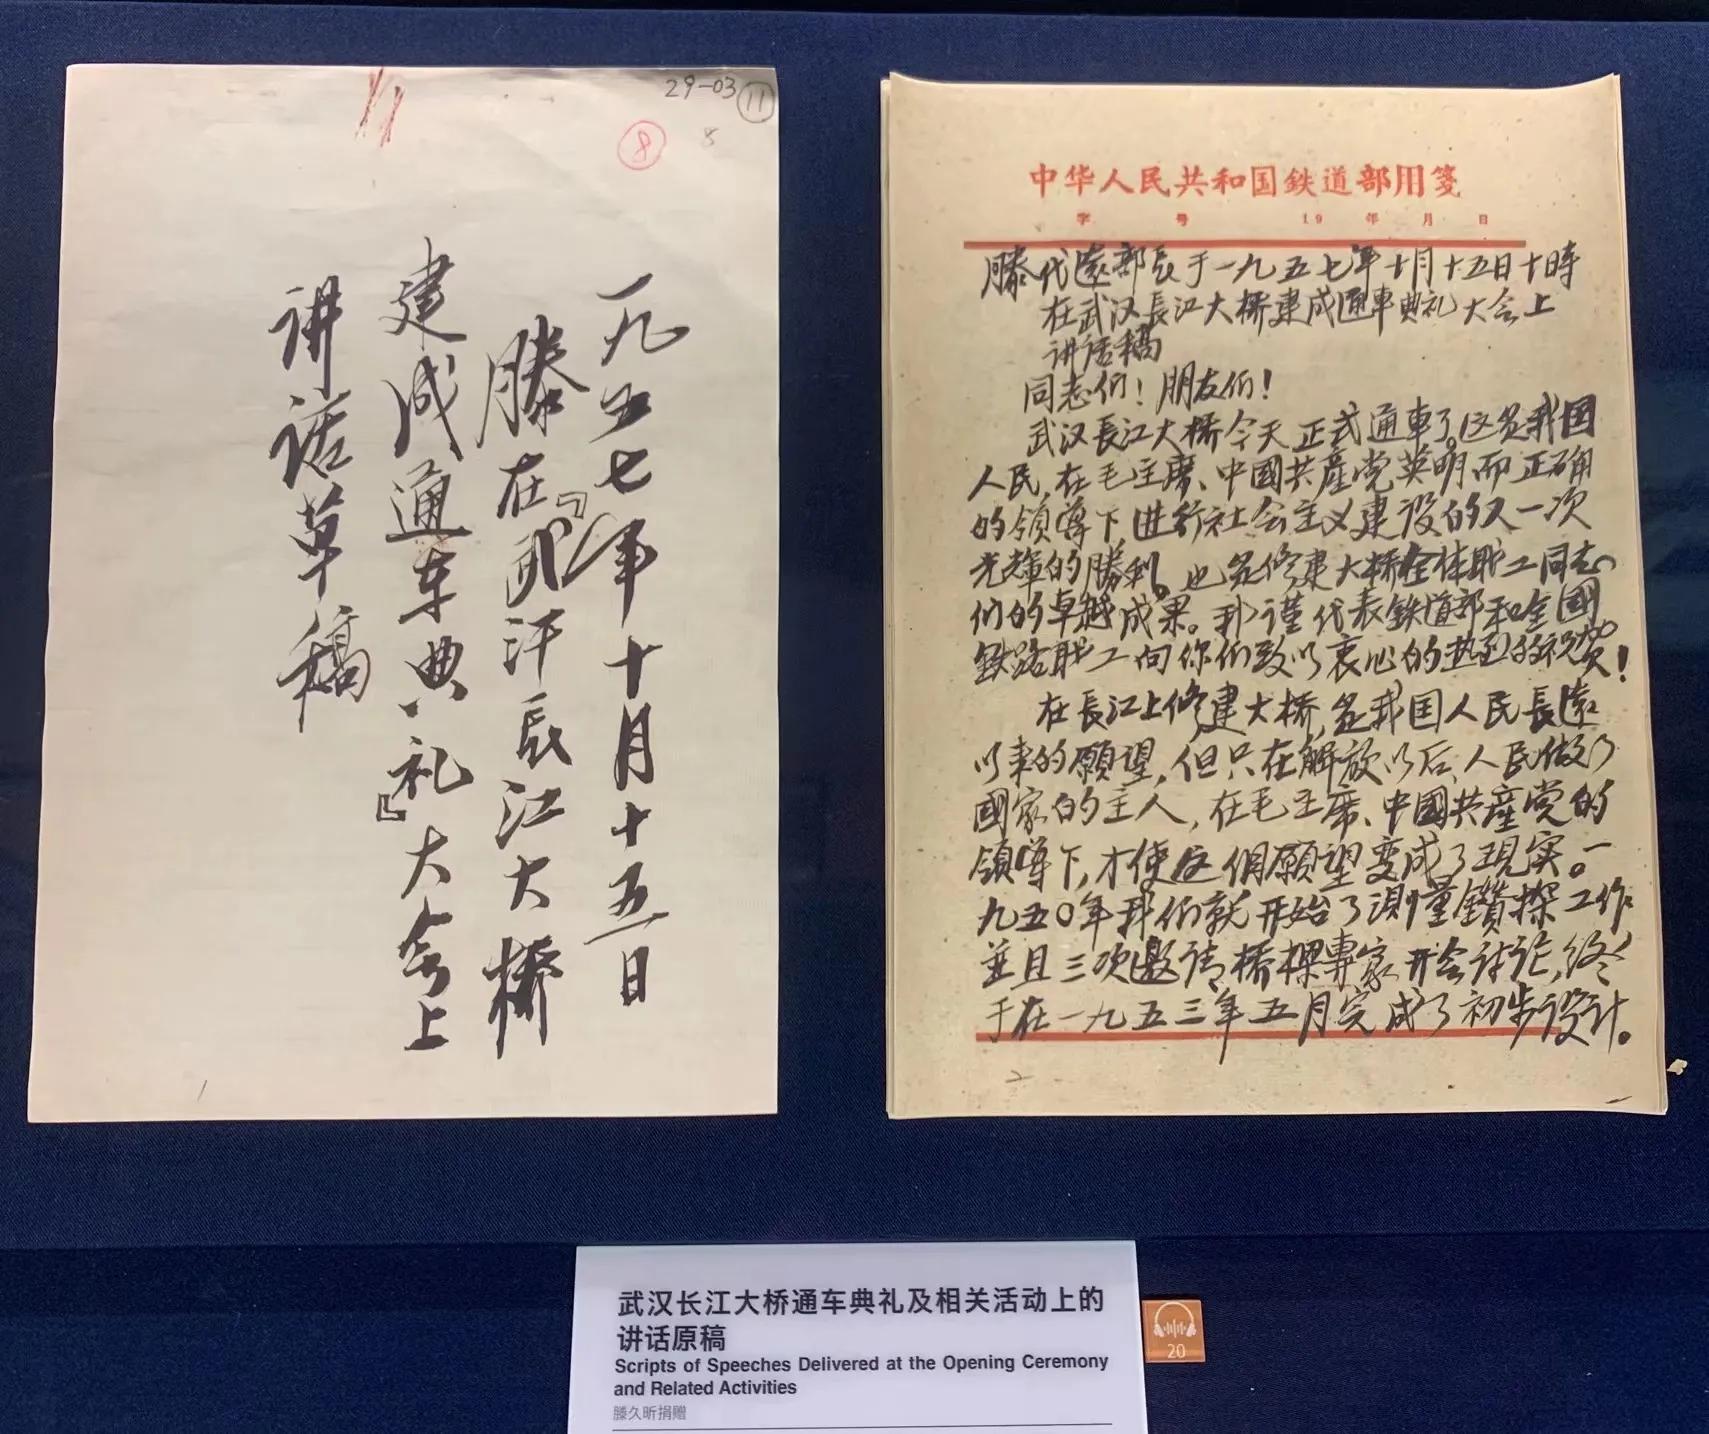 29-03 11
8
8
一九五七年十月十五日
滕在『武汉长江大桥
建成通车典礼』大会上
讲话草稿
1
中华人民共和国鉄道部用箋
字 号 19 年 月 日
滕代遠部長于一九五七年十月十五日十時
在武汉長江大桥建成通車典礼大会上
讲话稿
同志们！朋友们！
武汉長江大桥今天正式通車了。这是我国
人民，在毛主席、中國共產党英明而正确
的領導下，进行社会主义建设的又一次
光輝的勝利。也是修建大桥全体职工同志
们的卓越成果。我谨代表鉄道部和全國
鉄路职工向你们致以衷心的热烈的祝贺！
在長江上修建大桥，是我国人民長遠
以来的願望，但只在解放以后，人民做了
國家的主人，在毛主席、中國共產党的
領導下，才使这個願望变成了現实。一
九五〇年我们就开始了測量鑽探工作
並且三次邀请桥樑專家开会讨论，终
于在一九五三年五月完成了初步设计。
2
武汉长江大桥通车典礼及相关活动上的
讲话原稿
Scripts of Speeches Delivered at the Opening Ceremony
and Related Activities
滕久昕捐赠
20